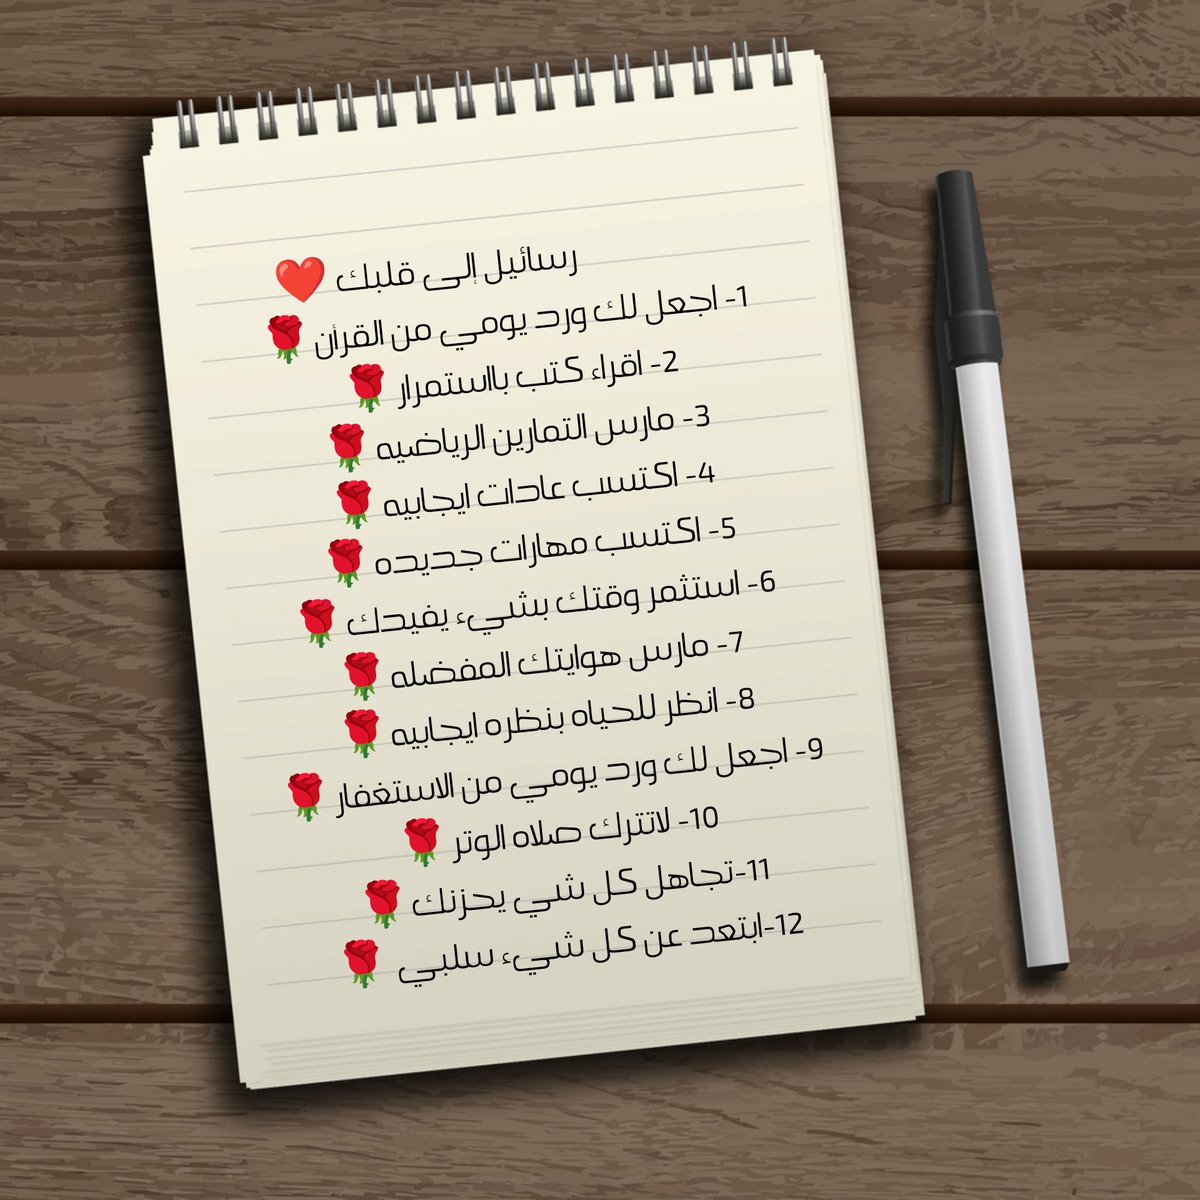 رسائيل إلى قلبك ❤️
1- اجعل لك ورد يومي من القرأن 🌹
2- اقراء كتب بااستمرار 🌹
3- مارس التمارين الرياضيه 🌹
4- اكتسب عادات ايجابيه 🌹
5- اكتسب مهارات جديده 🌹
6- استثمر وقتك بشيء يفيدك 🌹
7- مارس هوايتك المفضله 🌹
8- انظر للحياه بنظره ايجابيه 🌹
9- اجعل لك ورد يومي من الاستغفار 🌹
10- لاتترك صلاه الوتر 🌹
11-تجاهل كل شي يحزنك 🌹
12-ابتعد عن كل شيء سلبي 🌹